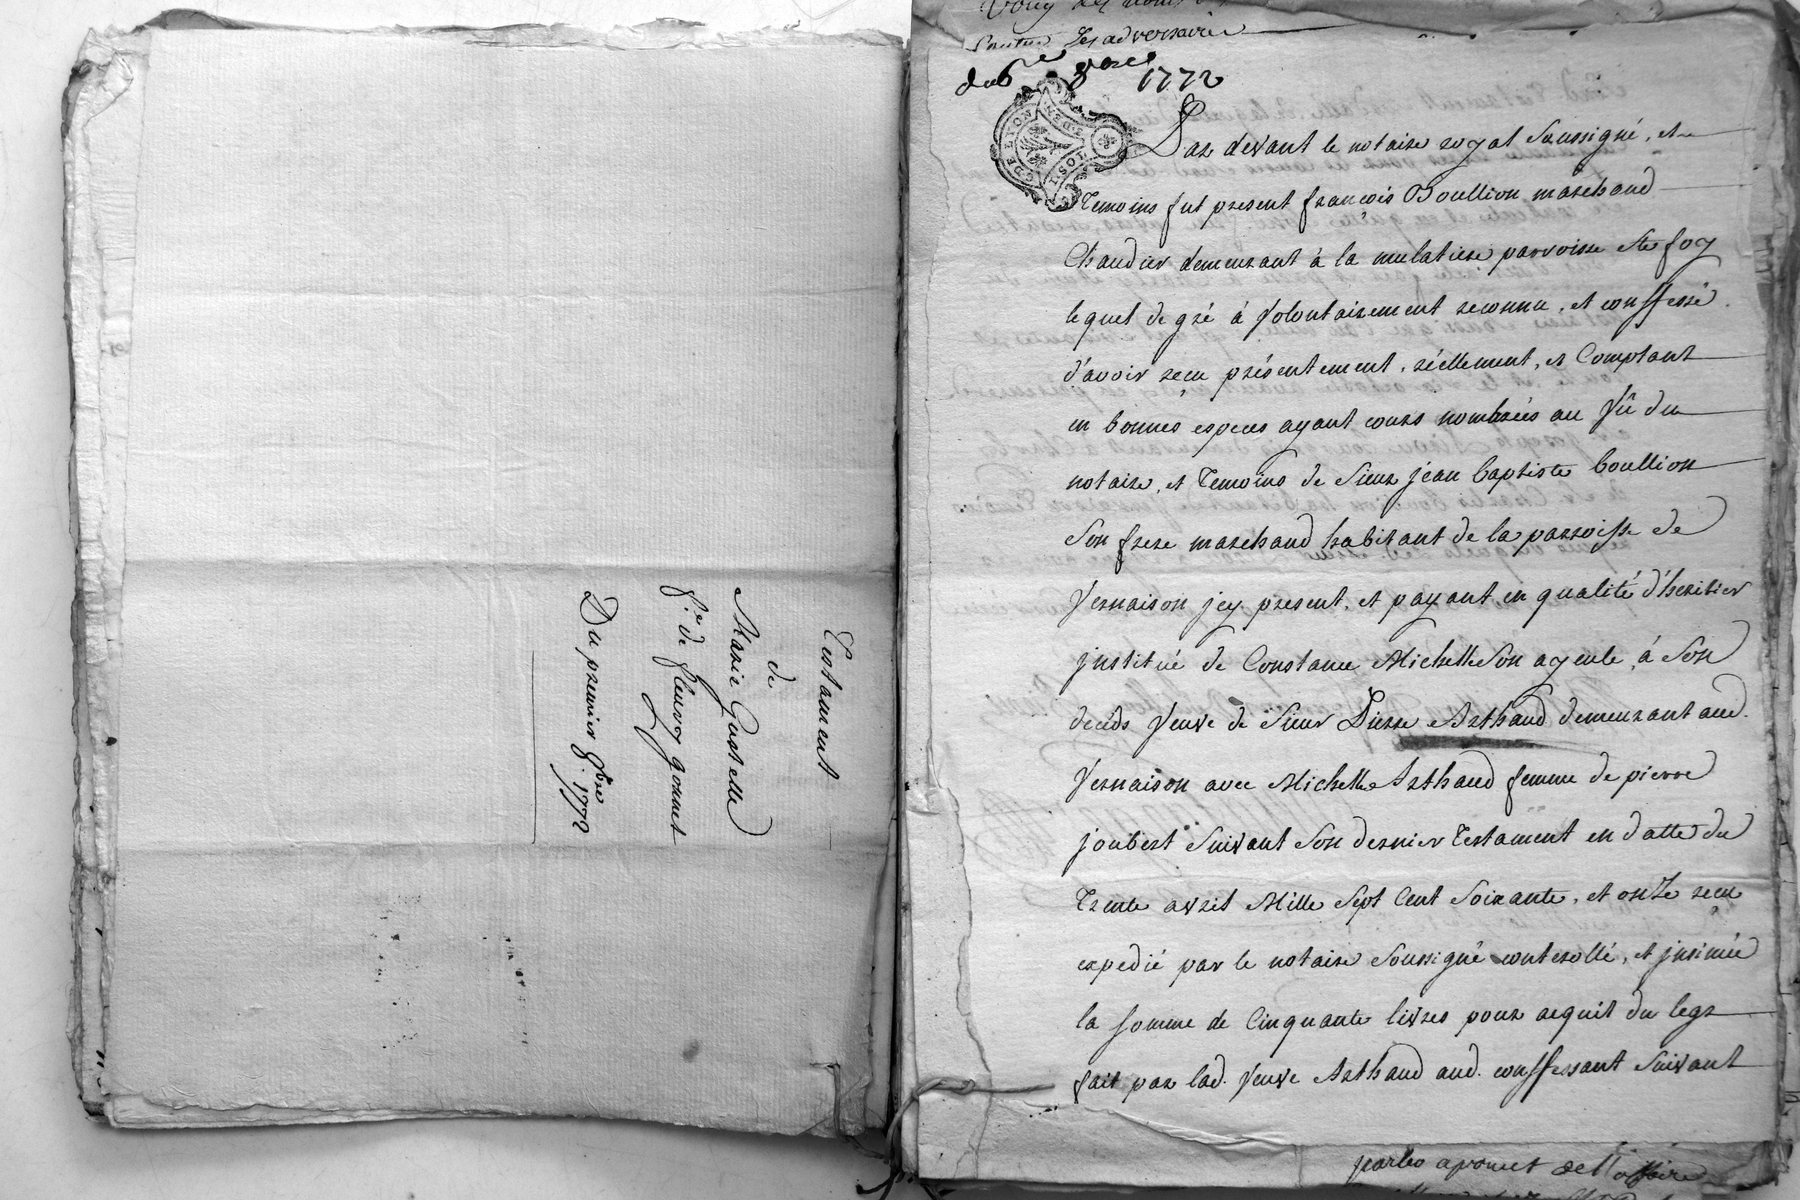 Testament
de
Marie Gustelle
f.e de fleury gonnet
Du premier 8bre 1772
contre les adversaires
du 6e 8bre 1772
G DE LYON
Par devant le notaire royal soussigné, et
temoins fut present françois Boullion marchand
Chandier demeurant à la mulatiere parroisse ste foy
lequel de gré à volontairement reconnu, et conffessé
d'avoir reçu présentement, réellement, et Comptant
en bonnes especes ayant cours nombrées au vû du
notaire, et temoins de sieur jean baptiste boullion
son frere marchand habitant de la parroisse de
vernaison jcy present, et payant en qualité d'heritier
jnstitué de Constance Michelle son ayeule, à son
decéds veuve de sieur Pierre Arthaud demeurant aud.
vernaison avec Michelle Arthaud femme de pierre
joubert suivant son dernier testament en datte du
trente avril Mille sept Cent soixante, et onze reçu
expedié par le notaire soussigné controllé, et jnsinué
la somme de Cinquante livres pour acquit du legs
fait par lad. veuve Arthaud aud. conffessant suivant